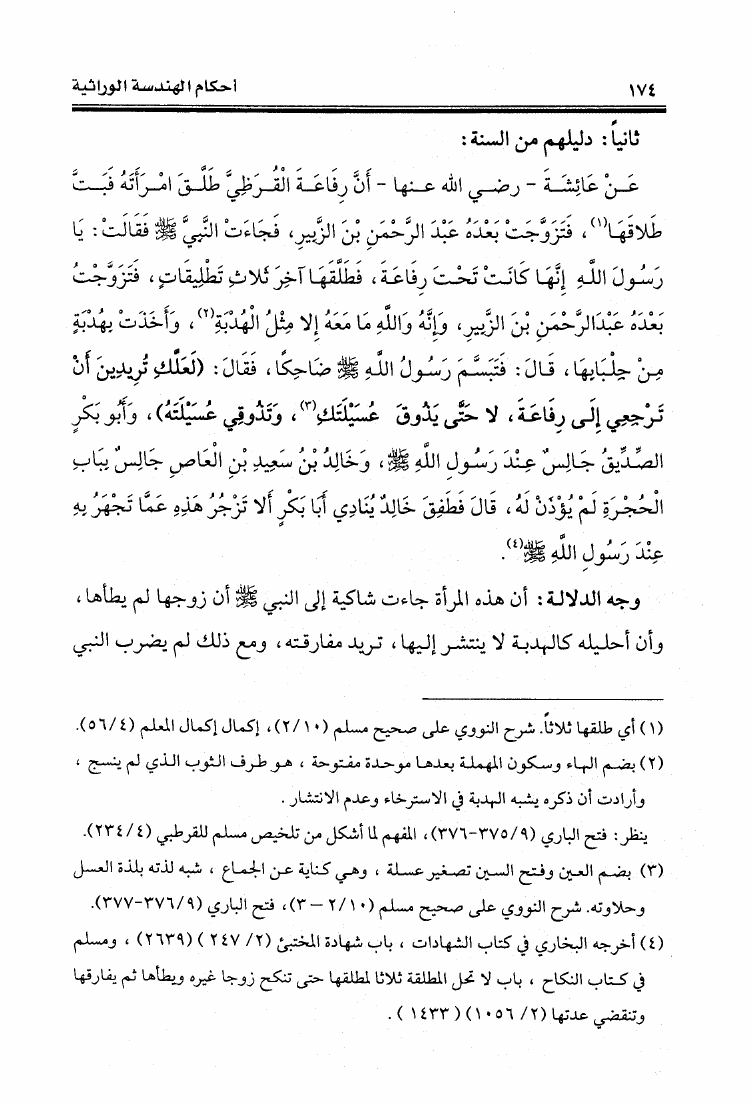 ١٧٤
أحكام الهندسة الوراثية
ثانياً: دليلهم من السنة:
عَـنْ عَائِشَـةَ - رضـي الله عـنها - أَنَّ رِفَاعَـةَ الْقُـرَظِيَّ طَلَّـقَ امْـرَأَتَهُ فَبَـتَّ
طَلاقَهَا(١)، فَتَزَوَّجَتْ بَعْدَهُ عَبْدَ الرَّحْمَنِ بْنَ الزَّبِيرِ، فَجَاءَتْ النَّبِيَّ ﷺ فَقَالَتْ: يَا
رَسُولَ اللَّهِ إِنَّهَا كَانَتْ تَحْتَ رِفَاعَةَ، فَطَلَّقَهَا آخِرَ ثَلاثِ تَطْلِيقَاتٍ، فَتَزَوَّجْتُ
بَعْدَهُ عَبْدَالرَّحْمَنِ بْنَ الزَّبِيرِ، وَإِنَّهُ وَاللَّهِ مَا مَعَهُ إِلا مِثْلُ الْهُدْبَةِ(٢)، وَأَخَذَتْ بِهُدْبَةٍ
مِنْ جِلْبَابِهَا، قَالَ: فَتَبَسَّمَ رَسُولُ اللَّهِ ﷺ ضَاحِكًا، فَقَالَ: (لَعَلَّكِ تُرِيدِينَ أَنْ
تَرْجِعِي إِلَى رِفَاعَةَ، لا حَتَّى يَذُوقَ عُسَيْلَتَكِ(٣)، وَتَذُوقِي عُسَيْلَتَهُ)، وَأَبُو بَكْرٍ
الصِّدِّيقُ جَالِسٌ عِنْدَ رَسُولِ اللَّهِ ﷺ، وَخَالِدُ بْنُ سَعِيدِ بْنِ الْعَاصِ جَالِسٌ بِبَابِ
الْحُجْرَةِ لَمْ يُؤْذَنْ لَهُ، قَالَ فَطَفِقَ خَالِدٌ يُنَادِي أَبَا بَكْرٍ أَلا تَزْجُرُ هَذِهِ عَمَّا تَجْهَرُ بِهِ
عِنْدَ رَسُولِ اللَّهِ ﷺ(٤).
وجه الدلالة: أن هذه المرأة جاءت شاكية إلى النبي ﷺ أن زوجها لم يطأها،
وأن أحليله كالهدبة لا ينتشر إليها، تريد مفارقته، ومع ذلك لم يضرب النبي
(١) أي طلقها ثلاثاً. شرح النووي على صحيح مسلم (٢/١٠)، إكمال إكمال المعلم (٥٦/٤).
(٢) بضم الهاء وسكون المهملة بعدها موحدة مفتوحة ، هو طرف الثوب الذي لم ينسج ،
وأرادت أن ذكره يشبه الهدبة في الاسترخاء وعدم الانتشار .
ينظر: فتح الباري (٣٧٥/٩-٣٧٦)، المفهم لما أشكل من تلخيص مسلم للقرطبي (٢٣٤/٤).
(٣) بضم العين وفتح السين تصغير عسلة ، وهي كناية عن الجماع ، شبه لذته بلذة العسل
وحلاوته. شرح النووي على صحيح مسلم (٢/١٠ – ٣)، فتح الباري (٣٧٦/٩-٣٧٧).
(٤) أخرجه البخاري في كتاب الشهادات ، باب شهادة المختبئ (٢/ ٢٤٧ ) (٢٦٣٩) ، ومسلم
في كتاب النكاح ، باب لا تحل المطلقة ثلاثا لمطلقها حتى تنكح زوجا غيره ويطأها ثم يفارقها
وتنقضي عدتها (٢/ ١٠٥٦) (١٤٣٣ ) .